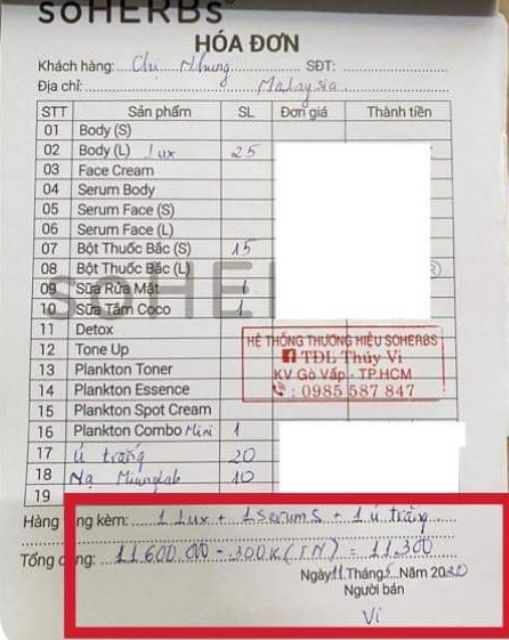 soHERBs
HÓA ĐƠN
Khách hàng: Chị Nhung SĐT:
Địa chỉ: Malaysia
STT Sản phẩm SL Đơn giá Thành tiền
01 Body (S)
02 Body (L) Lux 25
03 Face Cream
04 Serum Body
05 Serum Face (S)
06 Serum Face (L)
07 Bột Thuốc Bắc (S) 15
08 Bột Thuốc Bắc (L)
09 Sữa Rửa Mặt
10 Sữa Tắm Coco 1
11 Detox
12 Tone Up
13 Plankton Toner
14 Plankton Essence
15 Plankton Spot Cream
16 Plankton Combo Mini 1
17 Ủ trắng 20
18 Nạ 10
19
HỆ THỐNG THƯƠNG HIỆU SOHERBS
TĐL Thúy Vi
KV Gò Vấp - TP.HCM
: 0985 587 847
Hàng tặng kèm: 1 Lux + 1 Serum S + 1 ủ trắng
Tổng cộng: 11.600.00 - 300K (TN) = 11.300
Ngày 11 Tháng 5 Năm 2020
Người bán
Vi